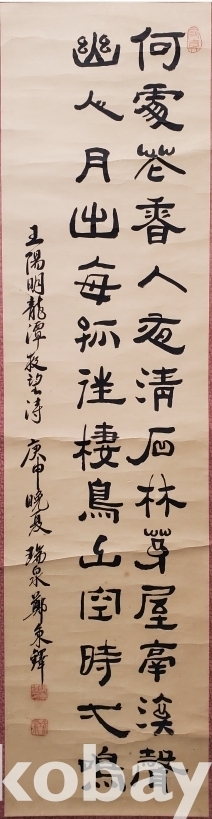 何處花香入夜清石林茅屋隔溪聲
幽人月出每孤往棲鳥山空時弌鳴
王陽明龍潭夜坐詩 庚申晚夏 瑞泉 鄭
kobay